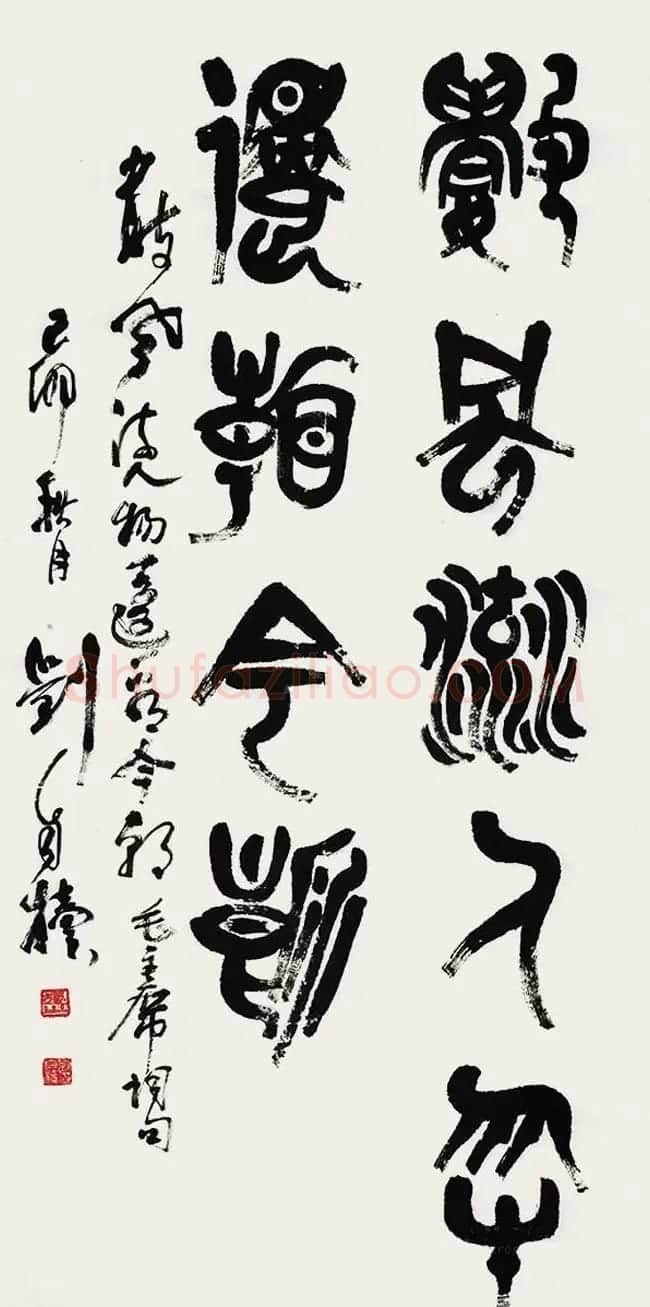 數風流人物
還看今朝
數風流人物還看今朝 毛主席詞句
己卯秋月 劉自櫝
Shufaziliao.com